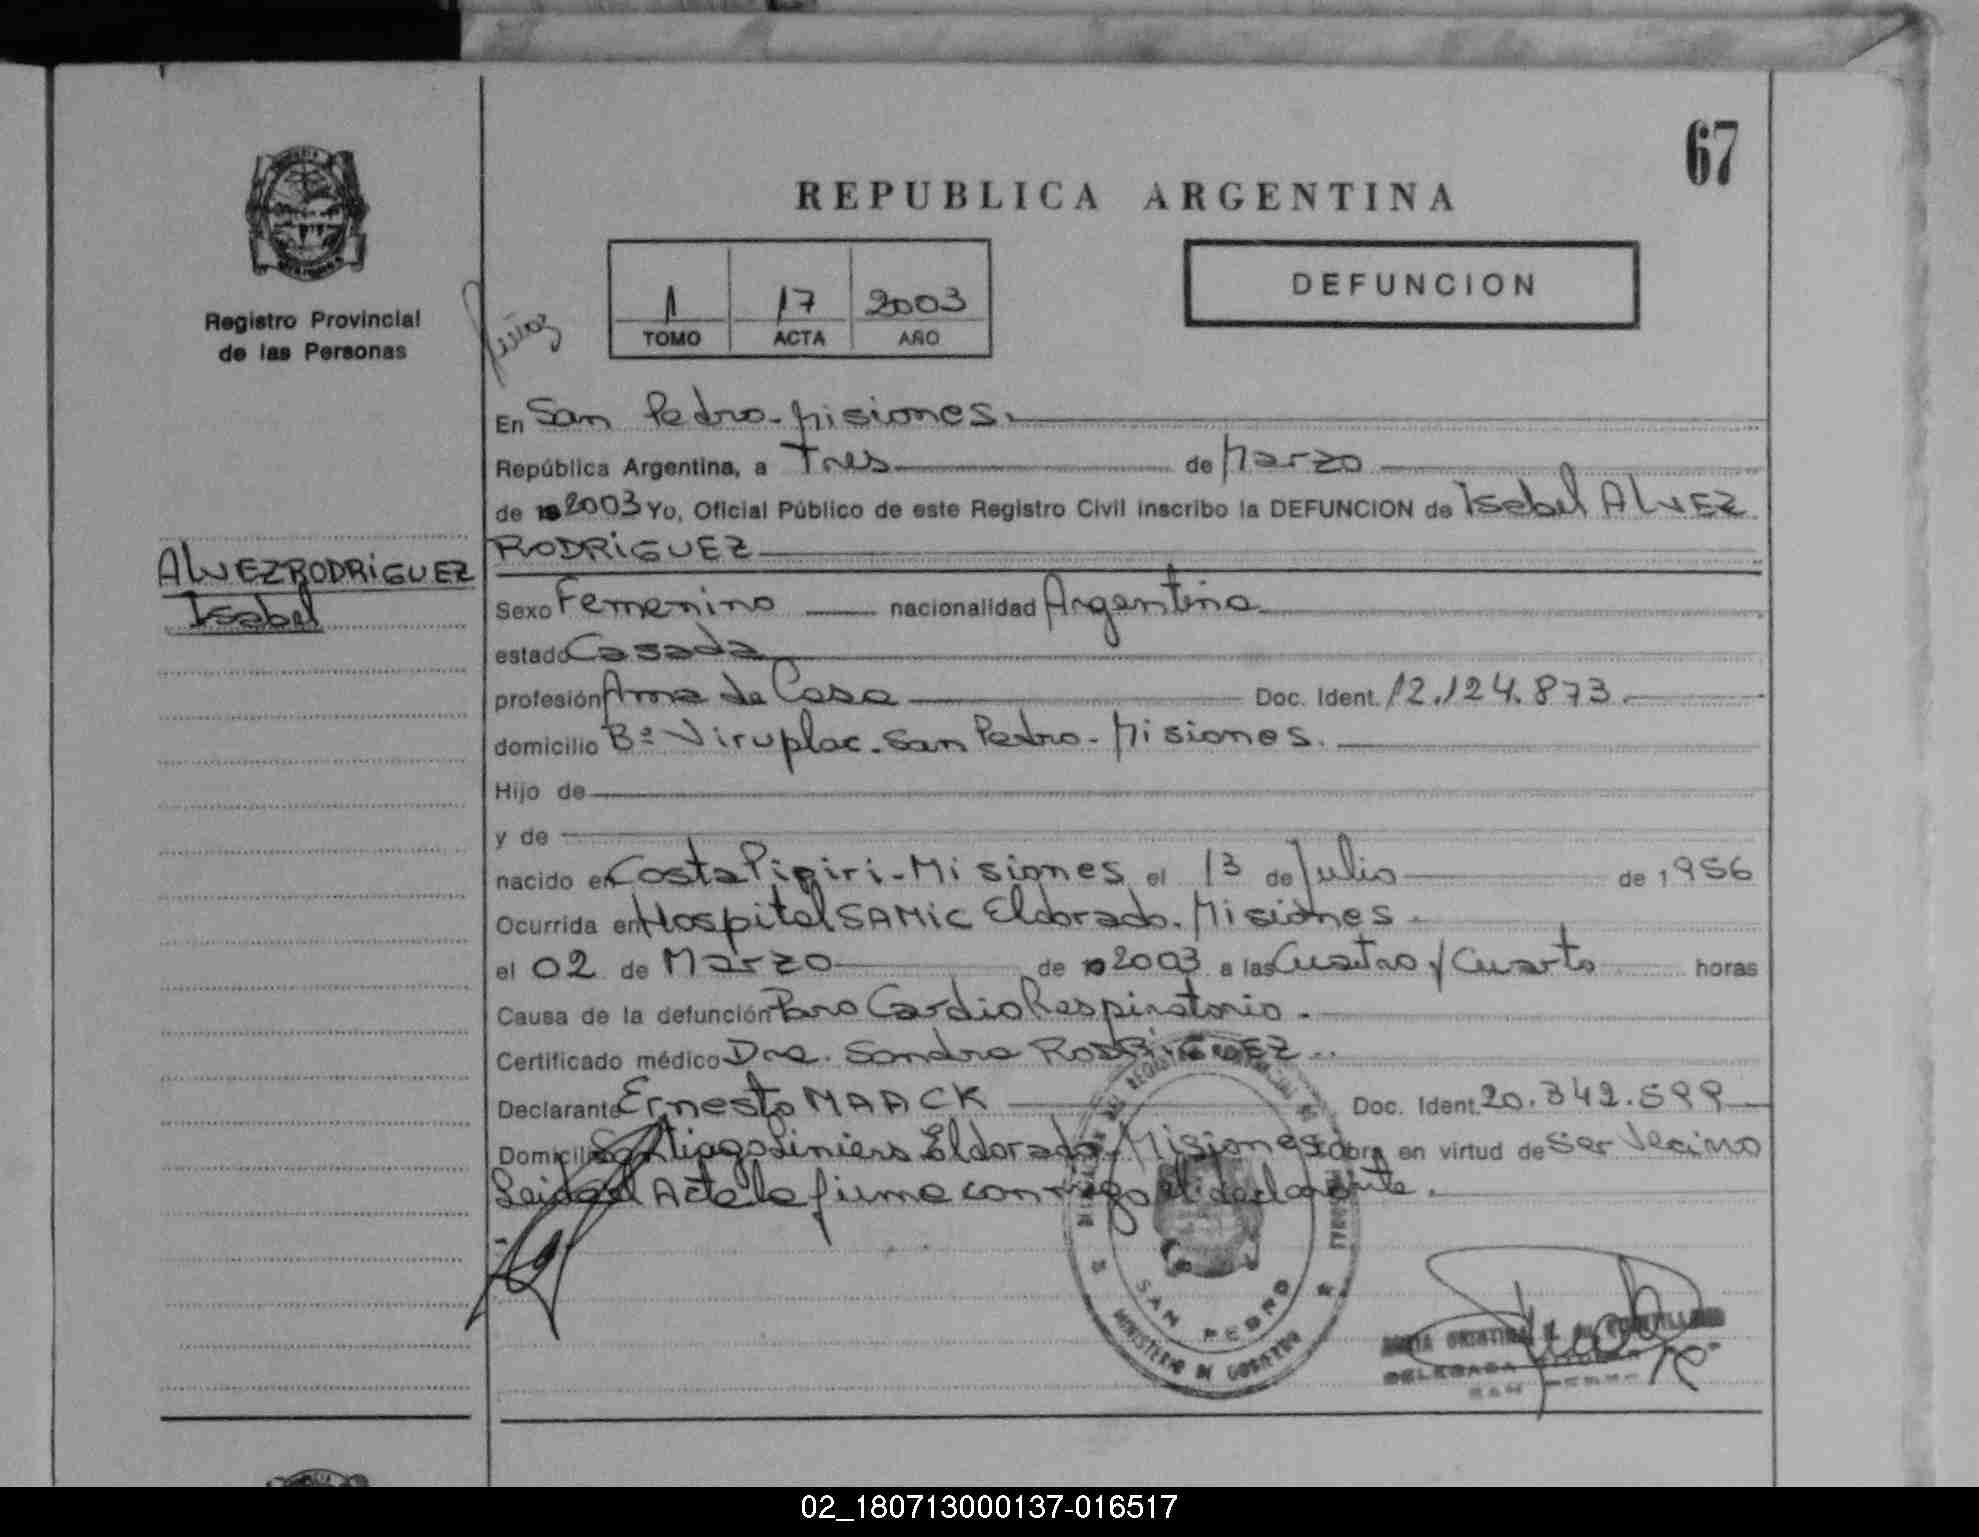 67
REPUBLICA ARGENTINA
Registro Provincial
de las Personas
1 17 2003
TOMO ACTA AÑO
DEFUNCION
En San Pedro-Misiones.
República Argentina, a Tres de Marzo
de 2003 Yo, Oficial Público de este Registro Civil inscribo la DEFUNCION de Isabel ALVEZ
RODRIGUEZ
ALVEZ RODRIGUEZ
Isabel
Sexo Femenino nacionalidad Argentina
estado Casada
profesión Ama de Casa Doc. Ident. 12.124.873.
domicilio Bº Viruplac. San Pedro-Misiones.
Hijo de
y de
nacido en Costa Pipiri-Misiones el 13 de Julio de 1956
Ocurrida en Hospital SAMIC Eldorado. Misiones.
el 02 de Marzo de 2003 a las Cuatro y Cuarto horas
Causa de la defunción Paro Cardio Respiratorio.
Certificado médico Dra. Sandra RODRIGUEZ..
Declarante Ernesto MAACK Doc. Ident. 20.342.599
Domicilio Santiago Liniers Eldorado-Misiones obra en virtud de Ser Vecino
Leida el Acta la firma conmigo el declarante.
SAN PEDRO
MINISTERIO DE GOBIERNO
02_180713000137-016517